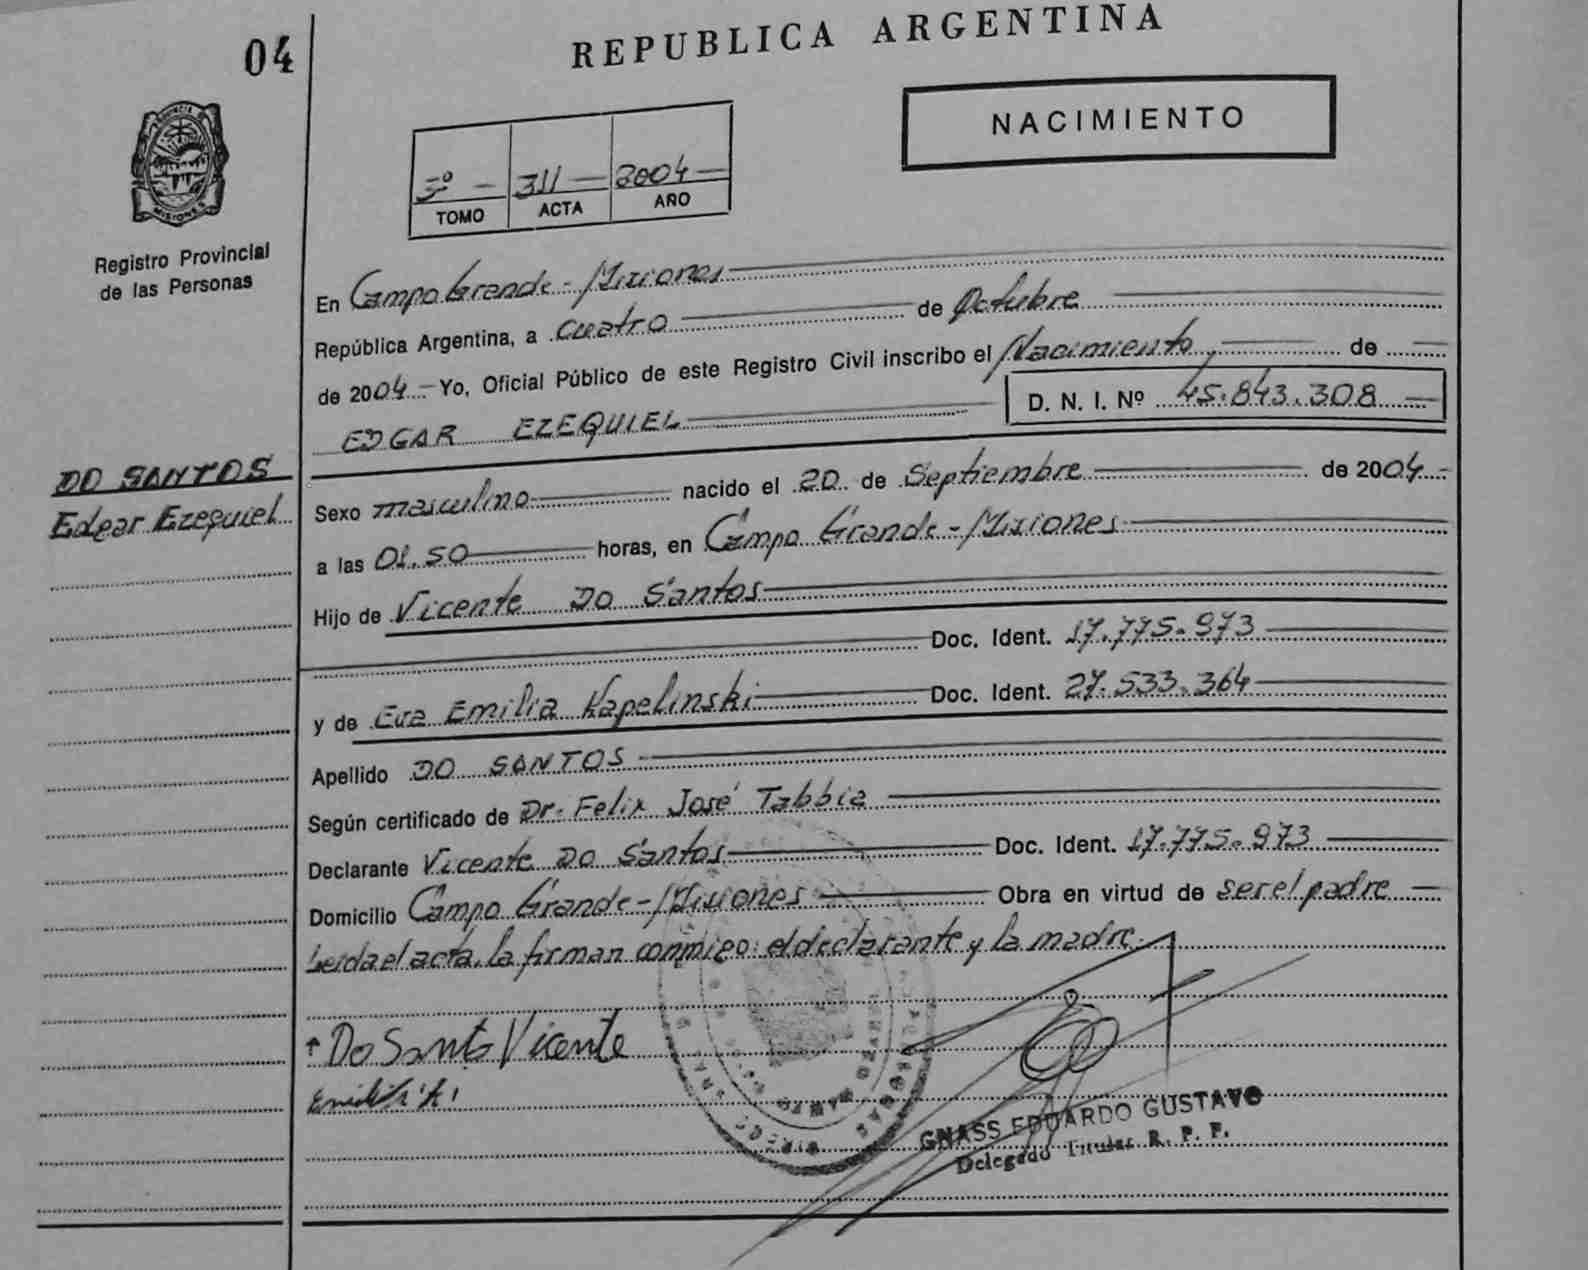 04
REPUBLICA ARGENTINA
PROVINCIA
MISIONES
Registro Provincial
de las Personas
NACIMIENTO
3º - 311 - 2004 -
TOMO ACTA AÑO
En Campo Grande - Misiones
República Argentina, a cuatro de Octubre
de 2004 - Yo, Oficial Público de este Registro Civil inscribo el Nacimiento, de
D. N. I. Nº 45.843.308
EDGAR EZEQUIEL
DO SANTOS
Edgar Ezequiel
Sexo masculino nacido el 20 de Septiembre de 2004.-
a las 01.50 horas, en Campo Grande - Misiones
Hijo de Vicente DO Santos
Doc. Ident. 17.775.973
y de Eva Emilia Kapelinski Doc. Ident. 27.533.364
Apellido DO SANTOS
Según certificado de Dr. Felix José Tabbia
Declarante Vicente DO Santos Doc. Ident. 17.775.973
Domicilio Campo Grande - Misiones Obra en virtud de ser el padre
Leida el acta, la firman conmigo: el declarante y la madre.
Do Santos Vicente
GNASS EDUARDO GUSTAVO
Delegado Titular R. P. P.